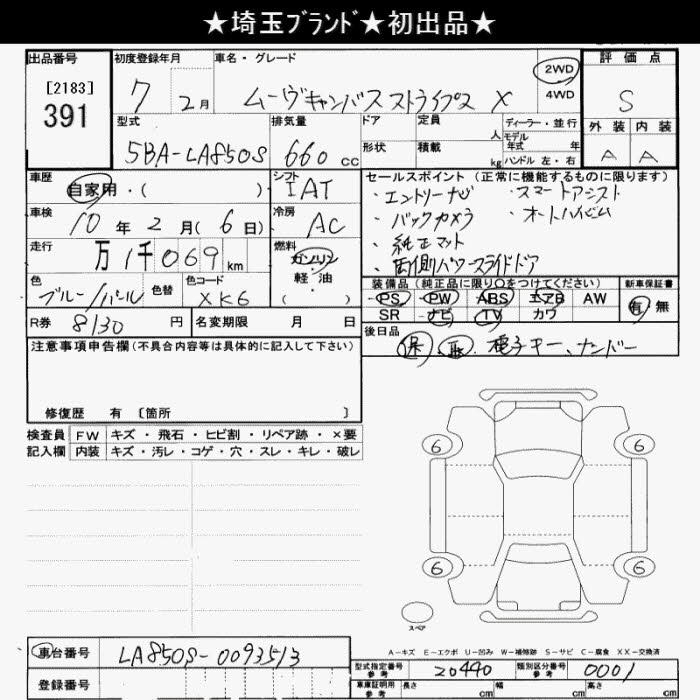 ★埼玉ﾌﾞﾗﾝﾄﾞ★初出品★
出品番号
[2183]
391
初度登録年月
7 2月
車名・グレード
ムーヴキャンバスストライプス X
2WD
4WD
評価点
S
外装 内装
A A
型式
5BA-LA850S
排気量
660 cc
ドア
形状
定員
人
積載
kg
ディーラー・並行
モデル年式 年
ハンドル 左・右
車歴
自家用・( )
シフト
IAT
車検
10年2月(6日)
冷房
AC
走行
万1千069km
燃料
ガソリン
軽・油
( )
色
ブルー/パール
色替
色コード
XK6
R券 8130円
名変期限 月 日
セールスポイント(正常に機能するものに限ります)
・エントリーナビ ・スマートアシスト
・バックカメラ ・オートハイビーム
・純正マット
・両側パワースライドドア
装備品(純正品に限り○をつけてください)
PS PW ABS エアB AW
SR ナビ TV カワ
新車保証書
有 無
後日品
保、取、電子キー、ナンバー
注意事項申告欄(不具合内容等は具体的に記入して下さい)
修復歴 有〔箇所 〕
検査員記入欄
FW キズ・飛石・ヒビ割・リペア跡・×要
内装 キズ・汚レ・コゲ・穴・スレ・キレ・破レ
6 6
6 6
スペア
A－キズ E－エクボ U－凹み W－補修跡 S－サビ C－腐食 XX－交換済
車台番号 LA850S-0093513
登録番号
型式指定番号 参考 20440
類別区分番号 参考 0001
車庫証明用 参考 長さ cm 幅 cm 高さ cm